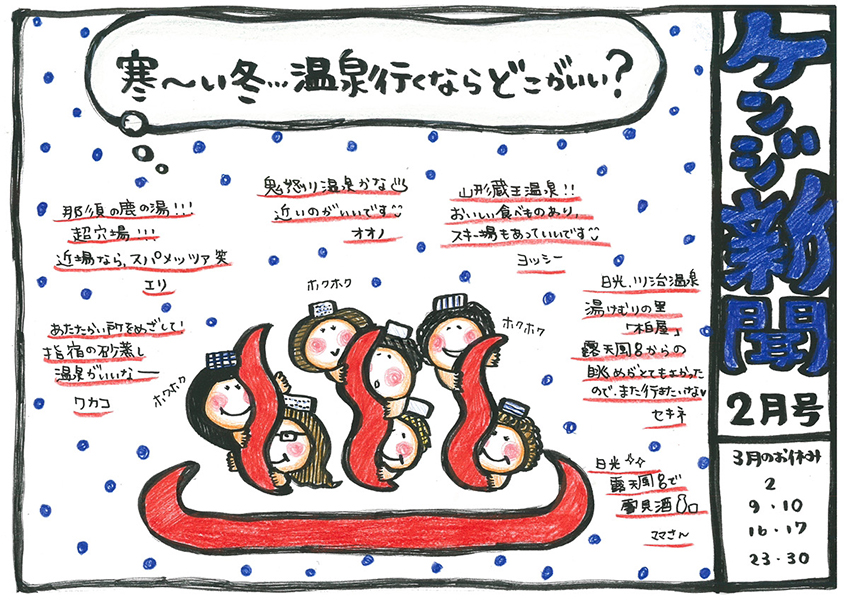 ケンジ新聞
2月号
3月のお休み
2
9・10
16・17
23・30
寒〜い冬…温泉行くならどこがいい?
那須の鹿の湯!!!
超穴場!!!
近場なら、スパメッツァ笑
エリ
鬼怒川温泉かな♨
近いのがいいです
オオノ
山形蔵王温泉!!
おいしい食べものあり、
スキー場もあっていいです
ヨッシー
あたたかい所をめざして!
指宿の砂蒸し
温泉がいいなー
ワカコ
日光、川治温泉
湯けむりの里
「柏屋」
露天風呂からの
眺めがとてもよかった
ので、また行きたいな♥
セキネ
日光
露天風呂で
雪見酒
ママさん
ホクホク
ホクホク
ホクホク